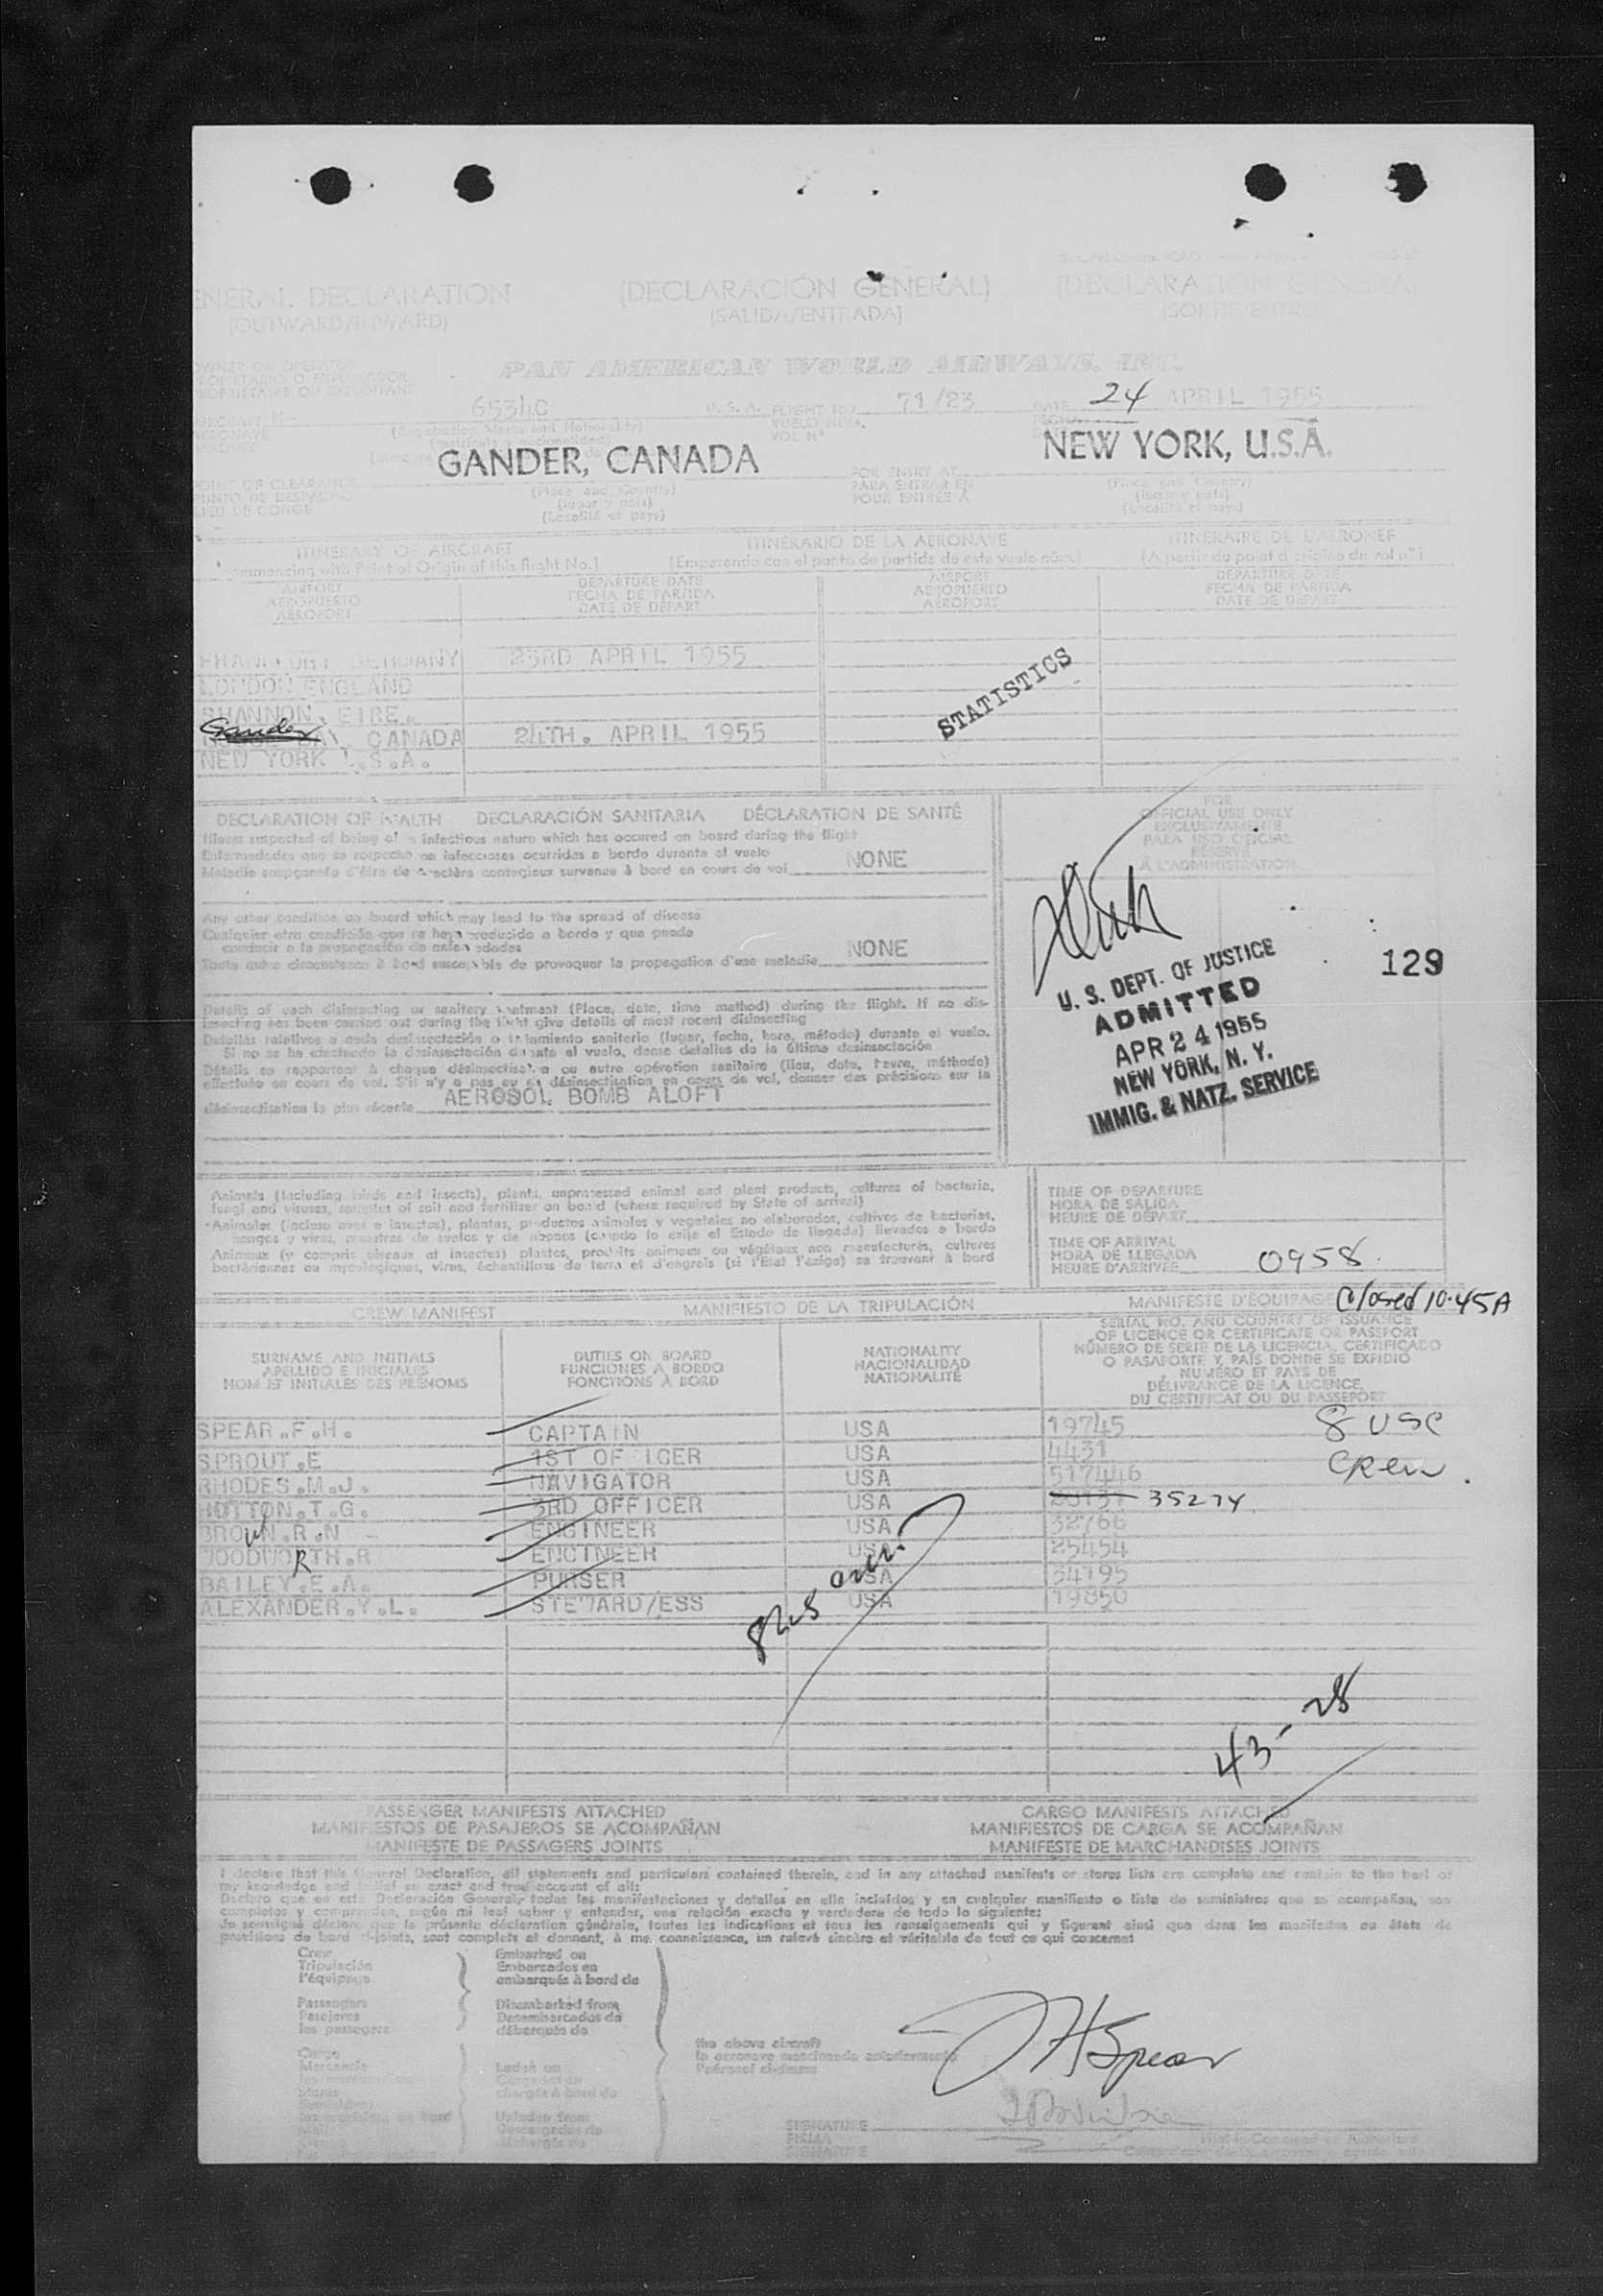 GENERAL DECLARATION (DECLARACIÓN GENERAL) (DECLARATION GENERAL
(OUTWARD/INWARD) (SALIDA/ENTRADA) (SORTIE/ENTRÉE)
PAN AMERICAN WORLD AIRWAYS, INC.
6534C U.S.A. FLIGHT NO. 71/23 DATE 24 APRIL 1955
VUELO NUM.
VOL N°
GANDER, CANADA NEW YORK, U.S.A.
POINT OF CLEARANCE FOR ENTRY AT
PUNTO DE DESPACHO (Place and Country) PARA ENTRAR EN (Place and Country)
LIEU DE CONGE (lugar y país) POUR ENTRÉE À (lugar y país)
(Localité et pays) (Localité et pays)
ITINERARY OF AIRCRAFT ITINERARIO DE LA AERONAVE ITINERAIRE DE L'AERONEF
Commencing with Point of Origin of this flight No.) (Empezando con el punto de partida de este vuelo núm.) (A partir du point d'origine du vol n°)
AIRPORT DEPARTURE DATE AIRPORT DEPARTURE DATE
AEROPUERTO FECHA DE PARTIDA AEROPUERTO FECHA DE PARTIDA
AEROPORT DATE DE DÉPART AEROPORT DATE DE DEPART
FRANKFURT GERMANY 23RD APRIL 1955
LONDON ENGLAND
SHANNON, EIRE.
Gander CANADA 24TH. APRIL 1955
NEW YORK U.S.A.
STATISTICS
DECLARATION OF HEALTH DECLARACIÓN SANITARIA DÉCLARATION DE SANTÉ
Illness suspected of being of an infectious nature which has occured on board during the flight
Enfermedades que se sospecha son infecciosas ocurridas a bordo durante el vuelo
Maladie soupçonnée d'être de caractère contagieux survenue à bord en cours de vol NONE
Any other condition on board which may lead to the spread of disease
Cualquier otra condición que se haya producido a bordo y que pueda
conducir a la propagación de enfermedades
Toute autre circonstance à bord susceptible de provoquer la propagation d'une maladie NONE
Details of each disinsecting or sanitary treatment (Place, date, time method) during the flight. If no dis-
insecting has been carried out during the flight give details of most recent disinsecting
Detalles relativos a cada desinsectación o tratamiento sanitario (lugar, fecha, hora, método) durante el vuelo.
Si no se ha efectuado la desinsectación durante el vuelo, dense detalles de la última desinsectación
Détails se rapportant à chaque désinsectisation ou autre opération sanitaire (lieu, date, heure, méthode)
effectuée en cours de vol. S'il n'y a pas eu de désinsectisation en cours de vol, donner des précisions sur la
désinsectisation la plus récente AEROSOL BOMB ALOFT
FOR
OFFICIAL USE ONLY
EXCLUSIVAMENTE
PARA USO OFICIAL
RESERVÉ
À L'ADMINISTRATION
129
U. S. DEPT. OF JUSTICE
ADMITTED
APR 24 1955
NEW YORK, N. Y.
IMMIG. & NATZ. SERVICE
Animals (Including birds and insects), plants, unprocessed animal and plant products, cultures of bacteria,
fungi and viruses, samples of soil and fertilizer on board (where required by State of arrival)
Animales (incluso aves e insectos), plantas, productos animales y vegetales no elaborados, cultivos de bacterias,
hongos y virus, muestras de suelos y de abonos (cuando lo exija el Estado de llegada) llevados a bordo
Animaux (y compris oiseaux et insectes) plantes, produits animaux ou végétaux non manufacturés, cultures
bactériennes ou mycologiques, virus, échantillons de terre et d'engrais (si l'Etat l'exige) se trouvant à bord
TIME OF DEPARTURE
HORA DE SALIDA
HEURE DE DÉPART
TIME OF ARRIVAL
HORA DE LLEGADA
HEURE D'ARRIVÉE 0958.
CREW MANIFEST MANIFIESTO DE LA TRIPULACIÓN MANIFESTE D'ÉQUIPAGE Closed 10.45A
SURNAME AND INITIALS DUTIES ON BOARD NATIONALITY SERIAL NO. AND COUNTRY OF ISSUANCE
APELLIDO E INICIALES FUNCIONES A BORDO NACIONALIDAD OF LICENCE OR CERTIFICATE OR PASSPORT
NOM ET INITIALES DES PRÉNOMS FONCTIONS À BORD NATIONALITÉ NÚMERO DE SERIE DE LA LICENCIA, CERTIFICADO
O PASAPORTE Y PAÍS DONDE SE EXPIDIÓ
NUMÉRO ET PAYS DE
DÉLIVRANCE DE LA LICENCE,
DU CERTIFICAT OU DU PASSEPORT
SPEAR.F.H. CAPTAIN USA 19745 8 USC
SPROUT.E 1ST OF ICER USA 4431 Crew.
RHODES.M.J. NAVIGATOR USA 517446
HUTTON.T.G. 3RD OFFICER USA 35274
BROWN.R.N ENGINEER USA 32766
WOODWORTH.R ENGINEER USA 25454
BAILEY.E.A. PURSER USA 34795
ALEXANDER.Y.L. STEWARD/ESS USA 19850
43-28
PASSENGER MANIFESTS ATTACHED CARGO MANIFESTS ATTACHED
MANIFIESTOS DE PASAJEROS SE ACOMPAÑAN MANIFIESTOS DE CARGA SE ACOMPAÑAN
MANIFESTE DE PASSAGERS JOINTS MANIFESTE DE MARCHANDISES JOINTS
I declare that this General Declaration, all statements and particulars contained therein, and in any attached manifests or stores lists are complete and contain to the best of
my knowledge and belief an exact and true account of all:
Declaro que en esta Declaración General, todas las manifestaciones y detalles en ella incluídos y en cualquier manifiesto o lista de suministros que se acompañan, son
completos y comprenden, según mi leal saber y entender, una relación exacta y verdadera de todo lo siguiente:
Je soussigné déclare que la présente déclaration générale, toutes les indications et tous les renseignements qui y figurent ainsi que dans les manifestes ou états de
provisions de bord ci-joints, sont complets et donnent, à ma connaissance, un relevé sincère et véritable de tout ce qui concerne:
Crew Embarked on
Tripulación Embarcados en
l'équipage embarqués à bord de
Passengers Disembarked from
Pasajeros Desembarcados de
les passagers débarqués de
the above aircraft
la aeronave mencionada anteriormente
l'aéronef ci-dessus
Cargo
Mercancía Laden on
Stores chargés à bord de
Unladen from
Descargados de
FHSpear
SIGNATURE
FIRMA
SIGNATURE